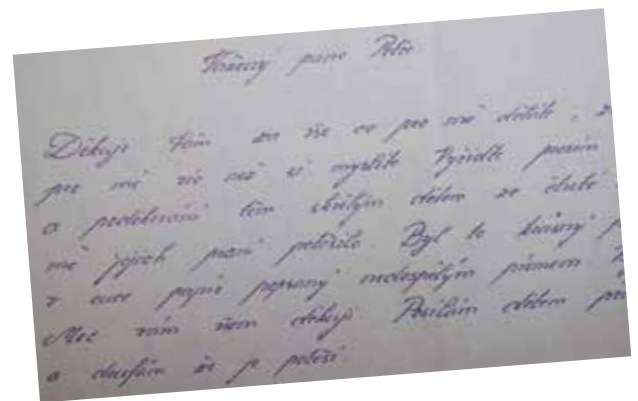 Vážený pane Petře
Děkuji Vám za vše co pro mě děláte, z
pro mě víc než si myslíte Vyřiďte prosím
a poděkování těm skvělým dětem ze
mě jejich psaní potěšilo. Byl to krásný
v ruce papír popsaný nedospělým písmem
Moc vám všem děkuji Posílám dětem
a doufám že je potěší